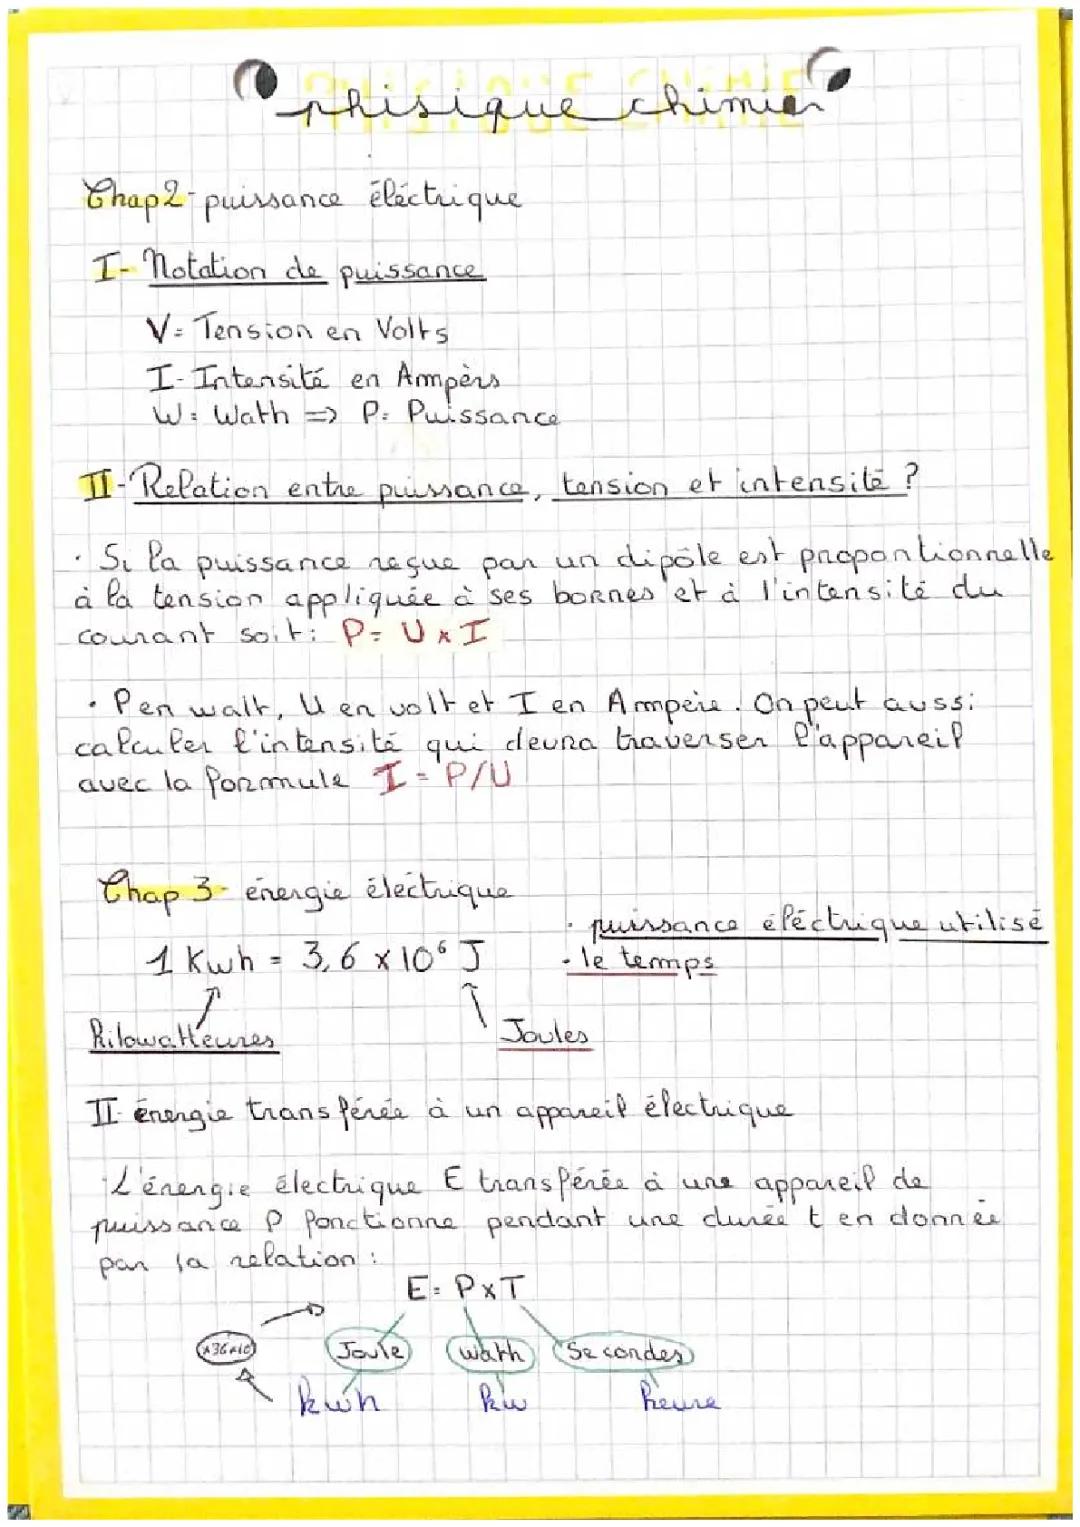 phisique chimie
Chap2- puissance éléctrique
I- Notation de puissance
V= Tension en Volts
I- Intensité en Ampèrs
W= Wath => P= Puissance
II- Relation entre puissance, tension et intensité ?
· Si la puissance reçue par un dipôle est proportionnelle
à la tension appliquée à ses bornes et à l'intensité du
courant soit: P= U x I
· P en watt, U en volt et I en Ampère. On peut aussi
calculer l'intensité qui devra traverser l'appareil
avec la formule I = P/U
Chap 3- énergie électrique
· puissance éléctrique utilisé
1 Kwh = 3,6 x 10⁶ J
· le temps
kilowatteures
Joules
II- énergie transférée à un appareil électrique
L'énergie électrique E transférée à une appareil de
puissance P fonctionne pendant une durée t en donnée
par la relation :
E= PxT
Joule wath Secondes
kwh kw heure